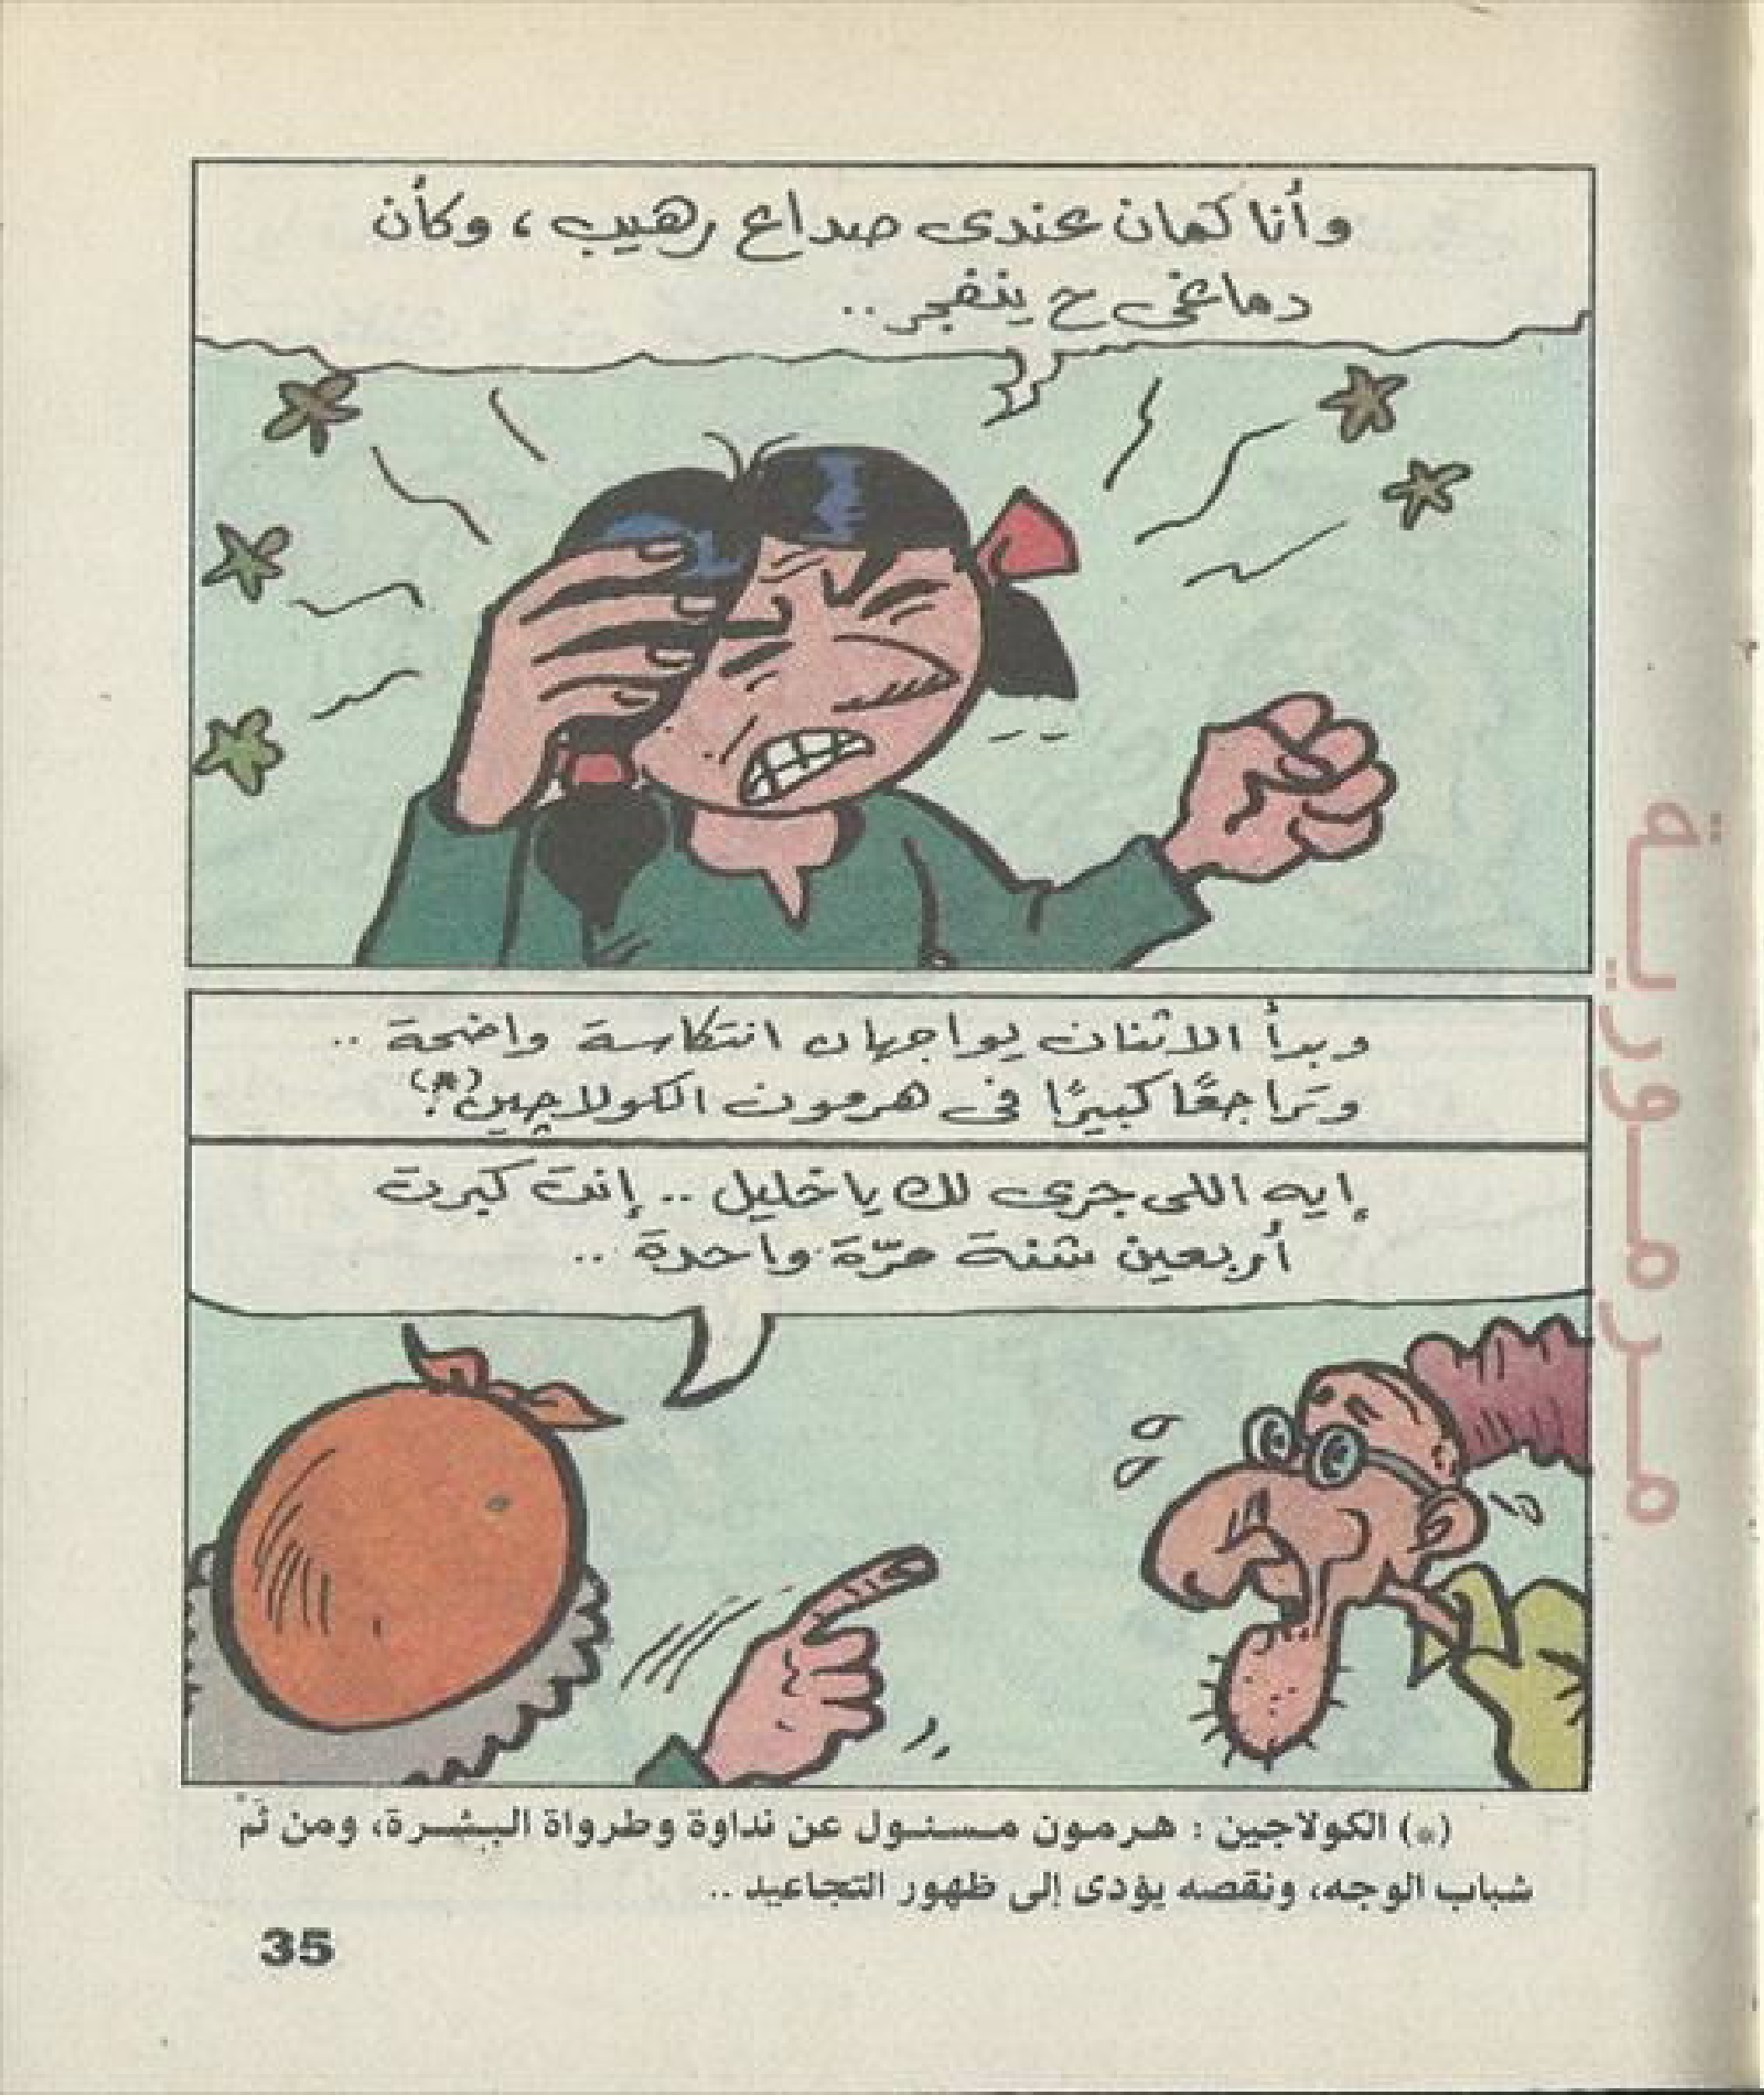 وأنا كمان عندى صداع رهيب، وكأن
دماغى ح ينفجر..
وبدأ الاثنان يواجهان انتكاسة واضحة..
وتراجعًا كبيرًا فى هرمون الكولاچين(*)!
إيه اللى جرى لك يا خليل.. إنت كبرت
أربعين سنة مرّة واحدة..
(*) الكولاجين : هرمون مسئول عن نداوة وطرواة البشرة، ومن ثَمْ
شباب الوجه، ونقصه يؤدى إلى ظهور التجاعيد ..
35
مرمورية